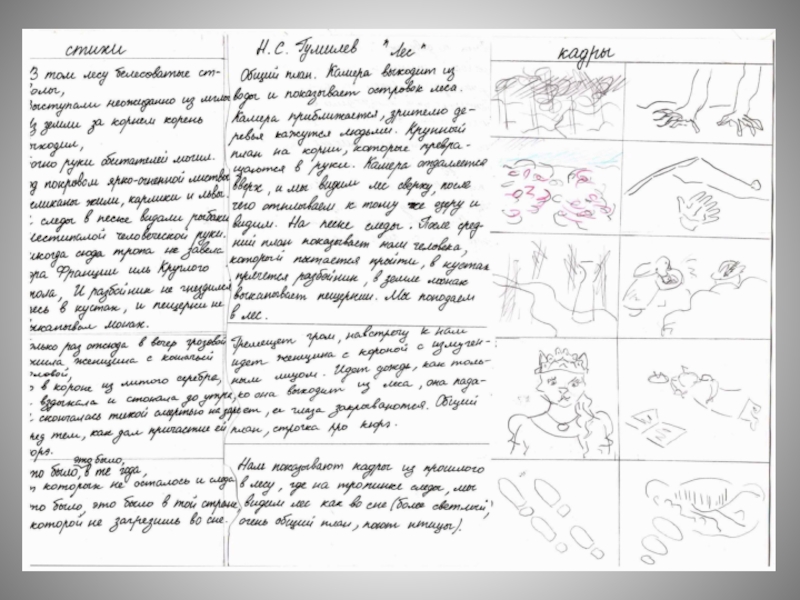 стихи
том лесу белесоватые ст-
олы,
выступали неожиданно из мглы
из земли за корнем корень
выходил,
точно руки обитателей могил.
под покровом ярко-огненной листвы
великаны жили, карлики и львы
следы в песке видали рыбаки
шестипалой человеческой руки.
никогда сюда тропа не завела
пэра Франции иль Круглого
стола. И разбойник не гнездился
здесь в кустах, и пещерки не
выкапывал монах.
только раз отсюда в вечер грозовой
вышла женщина с кошачьей
головой,
в короне из литого серебра,
вздыхала и стонала до утра,
скончалась тихой смертью на заре
перед тем, как дал причастье ей
кюрэ.
это было,
это было, в те года,
от которых не осталось и следа
это было, это было в той стране,
которой не загрезишь во сне.
Н. С. Гумилев "Лес"
Общий план. Камера выходит из
воды и показывает островок леса.
Камера приближается, зрителю де-
ревья кажутся людьми. Крупный
план на корни, которые превра-
щаются в руки. Камера отдаляется
вверх, и мы видим лес сверху, после
чего отплываем к тому же озеру и
видим. На песке следы. После сред-
ний план показывает нам человека,
который пытается пройти, в кустах
прячется разбойник, в земле монах
выкапывает пещерки. Мы попадаем
в лес.
Гремещет гром, навстречу к нам
идет женщина с короной с измучен-
ным лицом. Идет дождь, как толь-
ко она выходит из леса, она пада-
ет, ее глаза закрываются. Общий
план, строчка про кюрэ.
Нам показывают кадры из прошлого
в лесу, где на тропинке следы, мы
видим лес как во сне (более светлый,
очень общий план, поют птицы).
кадры